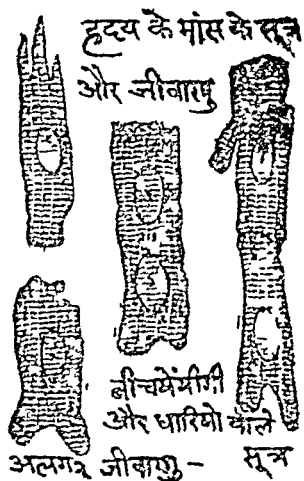 हृदय के मांस के सूत्र
और जीवाणु
बीच में मींगी
और धारियों वाले
अलग२ जीवाणु — सूत्र